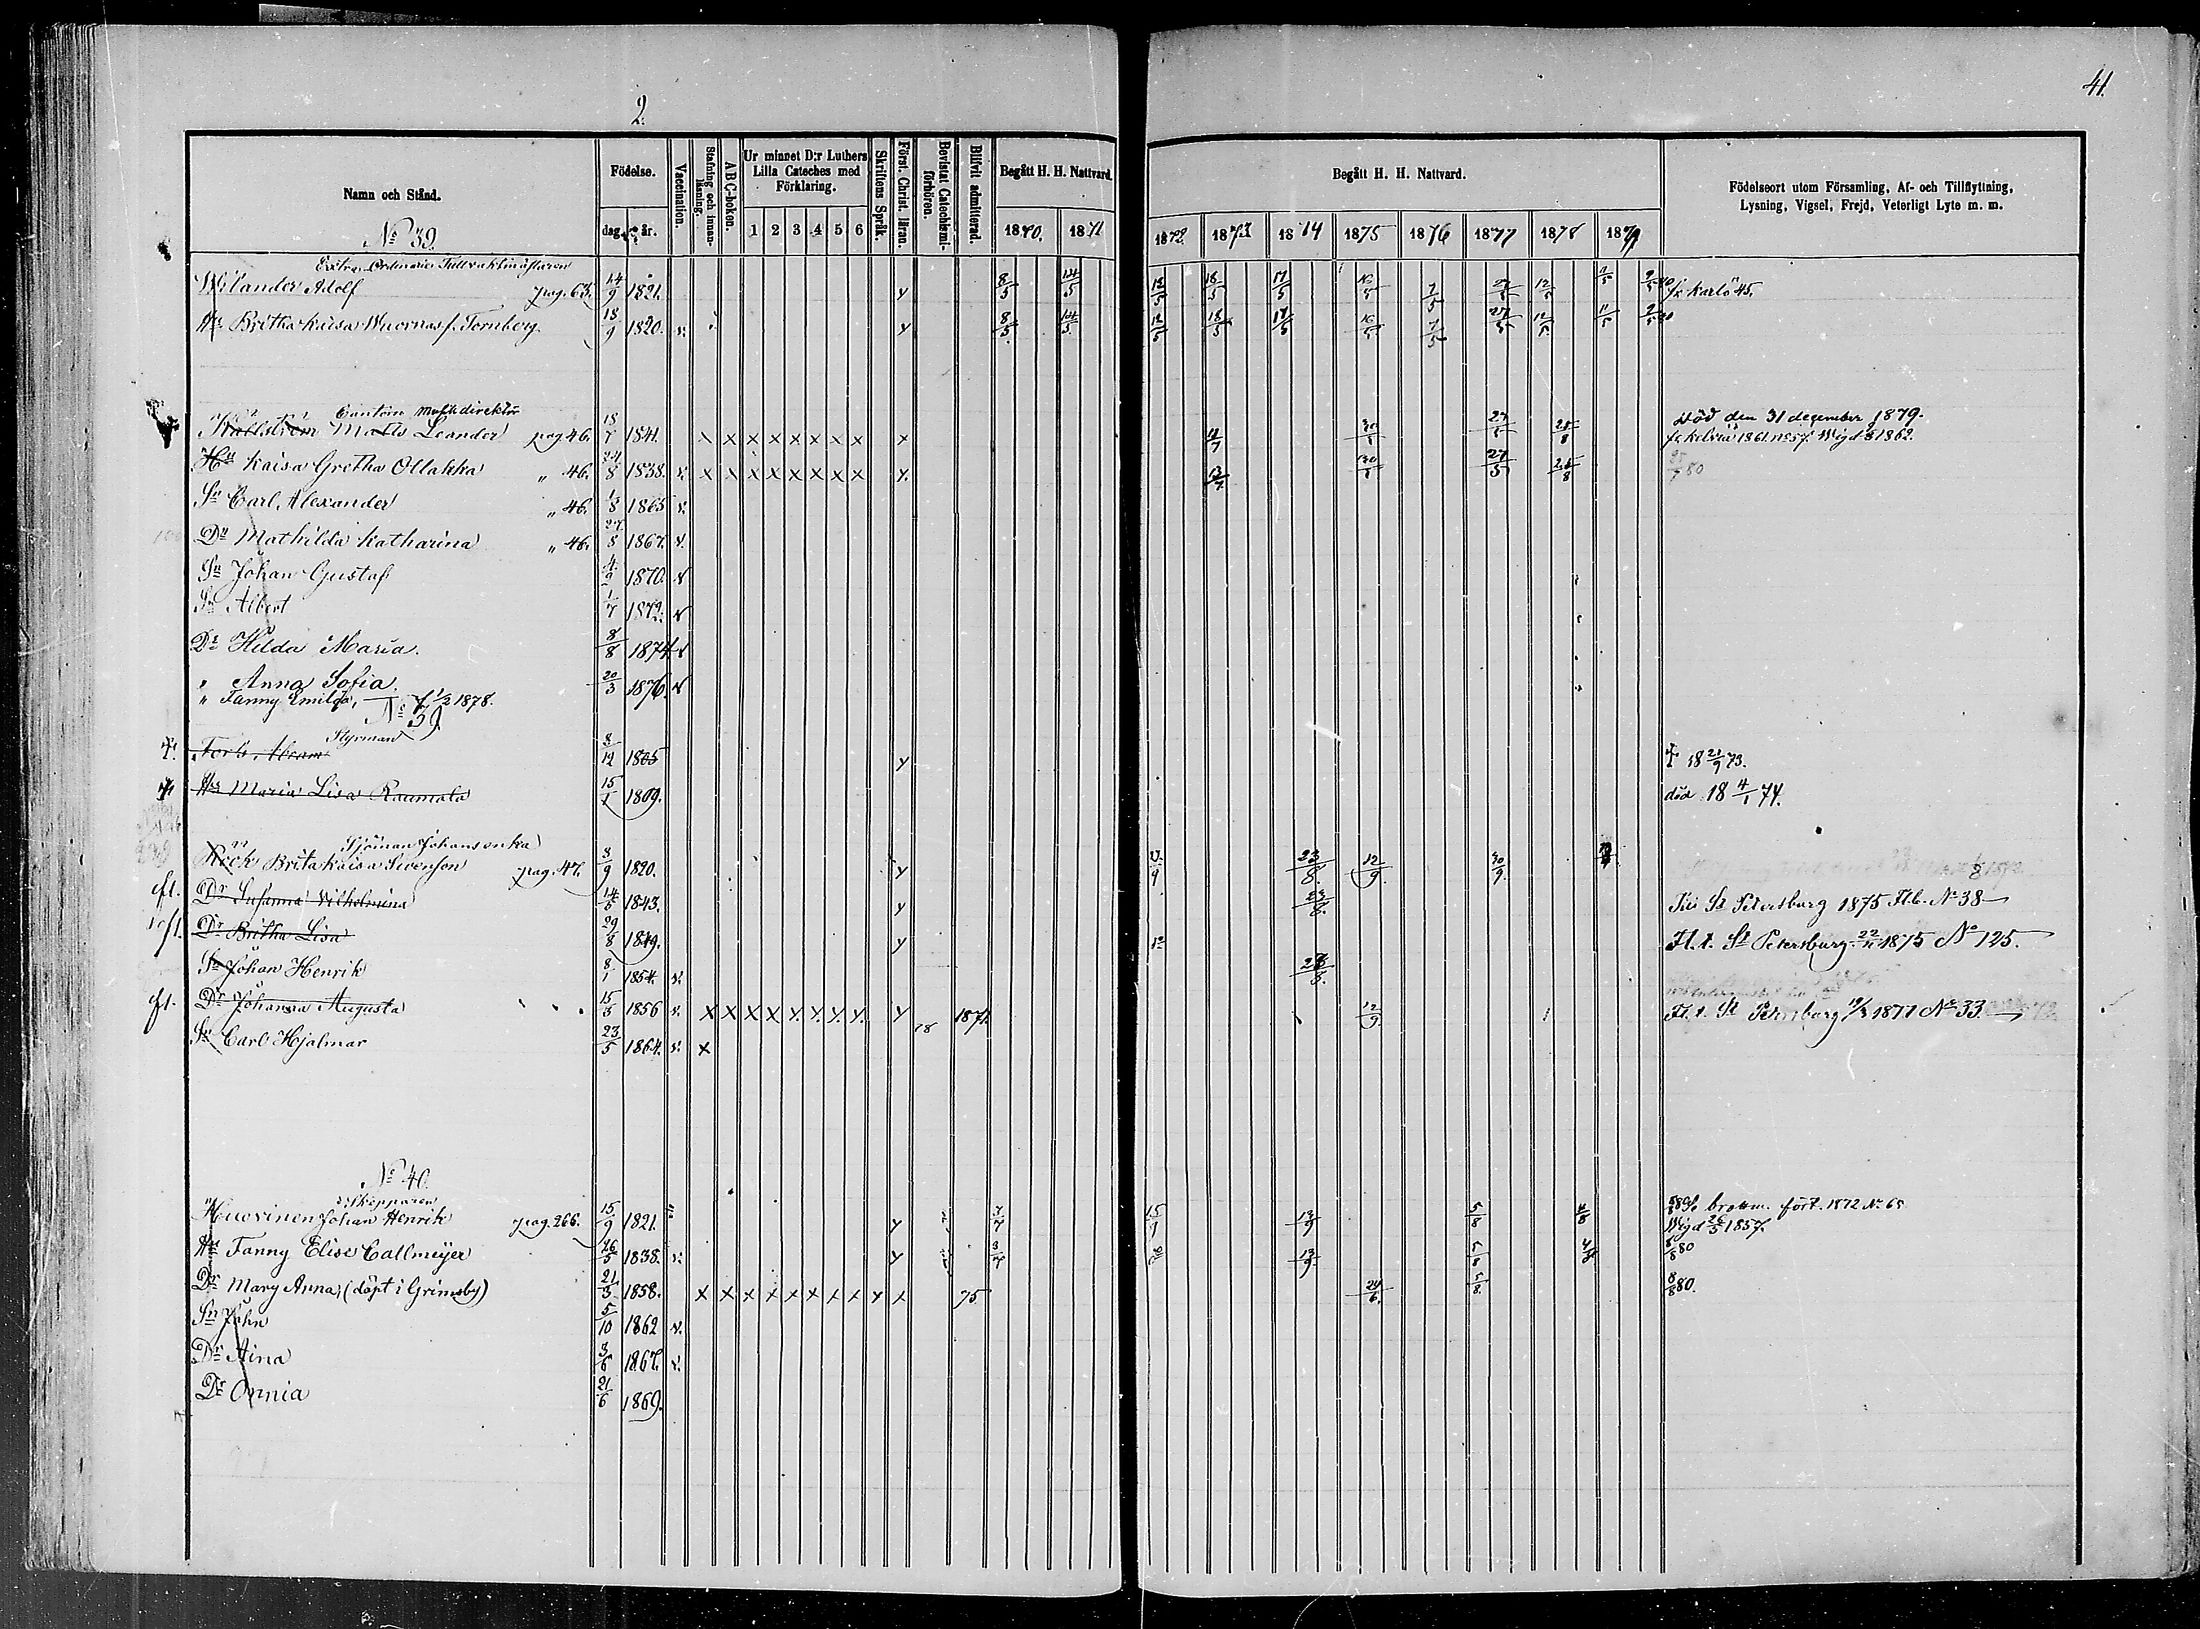 41.
2.
Namn och Stånd.
Födelse.
dag år.
Vaccination.
Stafning och innanläsning.
A B C-boken.
Ur minnet D:r Luthers Lilla Cateches med Förklaring.
1 2 3 4 5 6
Skriftens Språk.
Först. Christ. läran.
Bevistat Catechismiförhören.
Blifvit admitterad.
Begått H. H. Nattvard.
1870. 1871
Begått H. H. Nattvard.
1872. 1873 1874 1875 1876 1877 1878 1879
Födelseort utom Församling, Af- och Tillflyttning,
Lysning, Vigsel, Frejd, Veterligt Lyte m. m.
No 39.
Extra Ordinarie Tullvaktmästaren
Wilander Adolf pag. 63. 14/9 1821. y 8/5 14/5 12/5 18/5 17/5 16/5 7/5 27/5 12/5 fr Karlö 45.
Hu Britha Kaisa Wuornas f. Tornberg. 18/9 1820. v. y 8/5 14/5 12/5 18/5 17/5 16/5 7/5 27/5 12/5 11/5
Cantorn Musikdirektör
Wallström Matts Leander pag 46. 18/7 1841. x x x x x x x x x 27/5 25/8
Död den 31 december 1879.
fr Kelviå 1861 no 57. Wigd 1862.
Hu Kaisa Gretha Ollakka " 46. 24/8 1838. v. x x x x x x x x y. 27/5 25/8 25/7 80
Sn Carl Alexander " 46. 1865 v.
Dr Mathilda Katharina " 46. 27/8 1867. v.
Sn Johan Gustaf 4/9 1870. v
Sn Albert 1/7 1872. v
Dr Hilda Maria. 8/8 1874 v
" Anna Sofia. 20/3 1876. v
" Fanny Emilia, f. 1/2 1878.
No 39.
Styrman
Abram 8/12 1805 y † 18 21/9 73.
Hu Maria Lisa Raumala 15/1 1809. död 18 4/1 74.
Sjöman Johans enka
Brita Kaisa Svenson pag. 47. 3/9 1820. y 23/8 12/9 30/9
fl. Dr Susanna Vilhelmina 14/5 1843. y 23/8. Till St Petersburg 1875 Fl.b. No 38
Dr Britha Lisa 29/8 1849. y 12 Fl. t. St Petersburg 22/11 1875 No 125.
Sn Johan Henrik 8/1 1854. v.
fl. Dr Johanna Augusta 15/5 1856 v. x x x x y. y. y. y. y 18 1871. 12/9 Fl. t. St Petersburg 19/3 1877 No 33.
Sn Carl Hjalmar 23/5 1864. v. x
No 40.
Skepparen
Huovinen Johan Henrik pag. 266. 15/9 1821. y 7/7 13/9 5/8 4/8
1872 No 65
Wigd 26/5 1857.
Hu Fanny Elise Callmeyer 26/5 1838. v. y 13/9 5/8 4/8 8/8 80
Dr Mary Anna, (döpt i Grimsby) 21/3 1858. x x x x x x x x x x 75. 24/6. 5/8. 8/8 80.
Sn John 5/10 1862 v.
Dr Aina 3/6 1867. v.
Dr Onnia 21/6 1869.